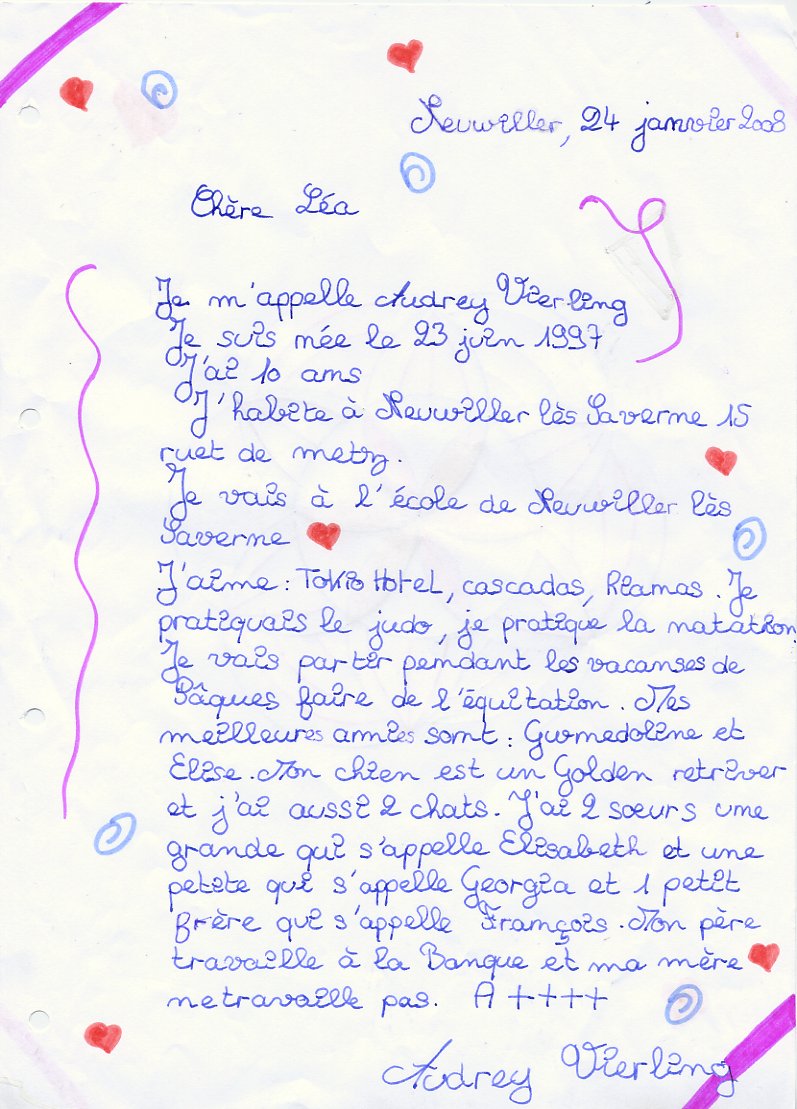 Neuwiller, 24 janvier 2008
Chère Léa
Je m'appelle Audrey Vierling
Je suis née le 23 juin 1997
J'ai 10 ans
J'habite à Neuwiller lès Saverne 15
ruet de metz.
Je vais à l'école de Neuwiller lès
Saverne
J'aime : Tokio Hotel, cascadas, Riamas. Je
pratiquais le judo, je pratique la natation
Je vais partir pendant les vacanses de
Pâques faire de l'équitation. Mes
meilleures amies sont : Gwnedoline et
Elise. Mon chien est un Golden retriver
et j'ai aussi 2 chats. J'ai 2 sœurs une
grande qui s'appelle Elisabeth et une
petite qui s'appelle Georgia et 1 petit
frère qui s'appelle François. Mon père
travaille à la Banque et ma mère
ne travaille pas. A ++++
Audrey Vierling